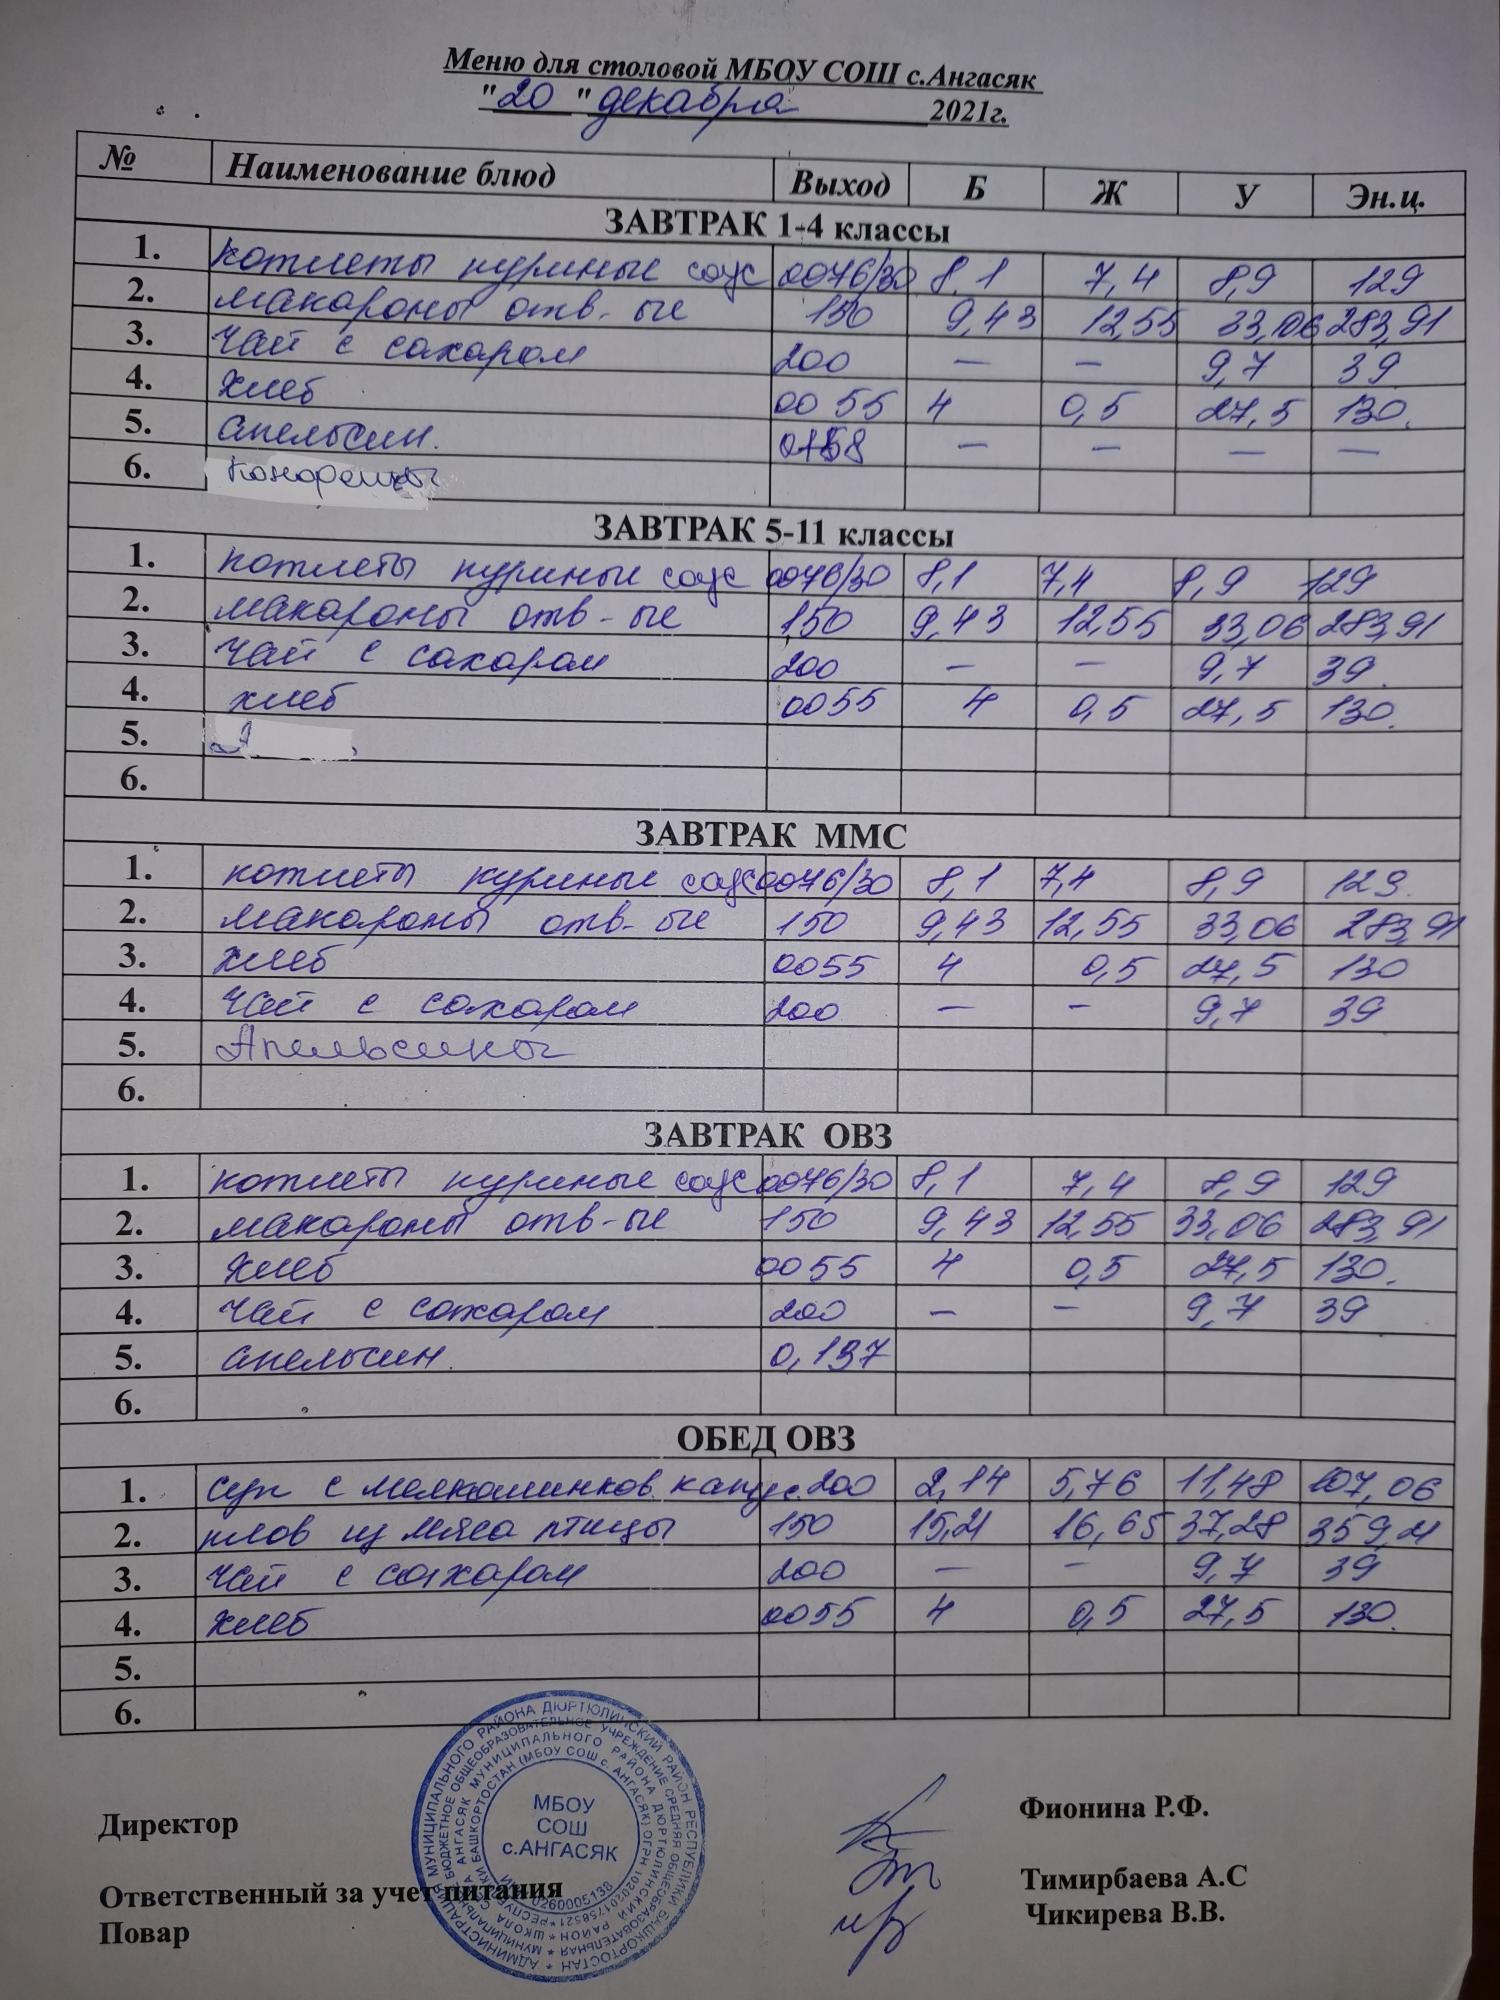 Меню для столовой МБОУ СОШ с.Ангасяк
"20" декабря 2021г.
№ Наименование блюд Выход Б Ж У Эн.ц.
ЗАВТРАК 1-4 классы
1. котлеты куриные соус 0076/30 8,1 7,4 8,9 129
2. макароны отв-ые 150 9,43 12,55 33,06 283,91
3. чай с сахаром 200 — — 9,7 39
4. хлеб 0055 4 0,5 27,5 130.
5. апельсин. — — — —
6.
ЗАВТРАК 5-11 классы
1. котлеты куриные соус 0076/30 8,1 7,4 8,9 129
2. макароны отв-ые 150 9,43 12,55 33,06 283,91
3. чай с сахаром 200 — — 9,7 39.
4. хлеб 0055 4 0,5 27,5 130.
5.
6.
ЗАВТРАК ММС
1. котлеты куриные соус 0076/30 8,1 7,4 8,9 129.
2. макароны отв-ые 150 9,43 12,55 33,06 283,91
3. хлеб 0055 4 0,5 27,5 130
4. чай с сахаром 200 — — 9,7 39
5. Апельсины
6.
ЗАВТРАК ОВЗ
1. котлеты куриные соус 0076/30 8,1 7,4 8,9 129
2. макароны отв-ые 150 9,43 12,55 33,06 283,91
3. хлеб 0055 4 0,5 27,5 130.
4. чай с сахаром 200 — — 9,7 39
5. апельсин. 0,137
6.
ОБЕД ОВЗ
1. суп с 200 2,14 5,76 11,48 107,06
2. плов из мяса птицы 150 15,21 16,65 37,28 359,21
3. чай с сахаром 200 — — 9,7 39
4. хлеб 0055 4 0,5 27,5 130.
5.
6.
МБОУ
СОШ
с.АНГАСЯК
Директор Фионина Р.Ф.
Ответственный за учет питания Тимирбаева А.С
Повар Чикирева В.В.